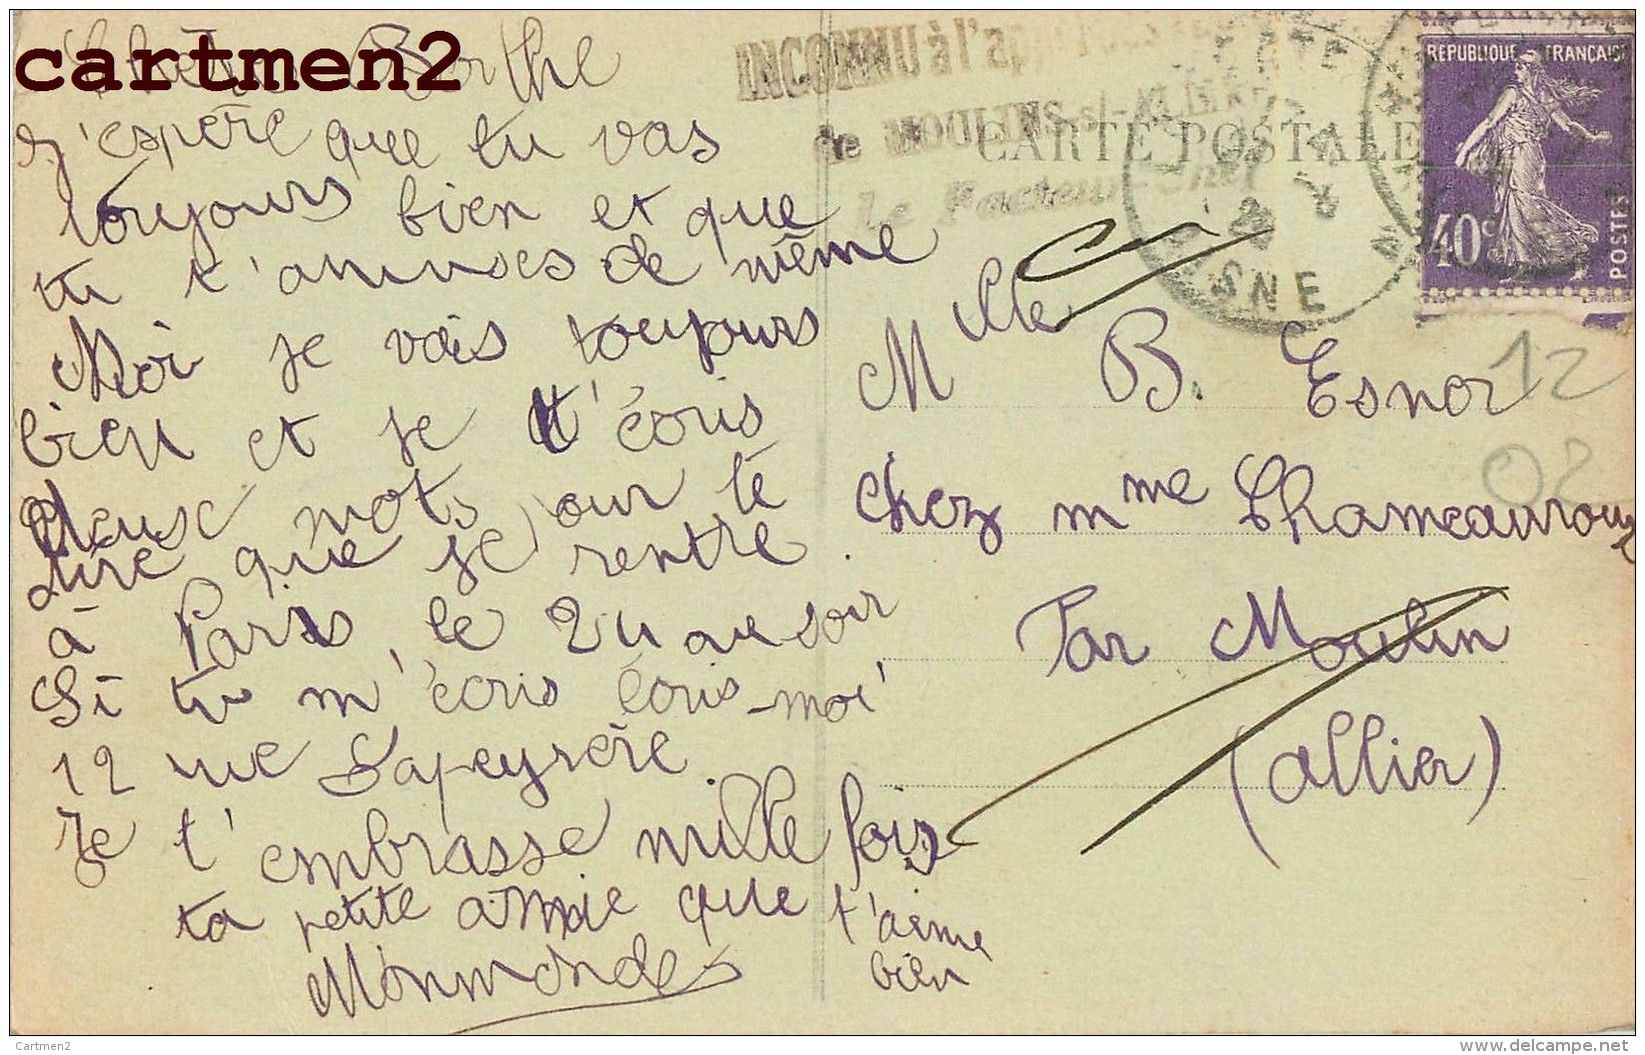 cartmen2
Berthe
J'espère que tu vas
toujours bien et que
tu t'amuses de même
Moi je vais toujours
bien et je t'écris
deux mots pour te
dire que je rentre.
à Paris le 24 au soir
Si tu m'écris écris-moi
12 rue Lapeyrère.
Je t'embrasse mille fois
ta petite amie que t'aime
bien
INCONNU à l'
de MOULINS-s/-ALLIER
Le Facteur-Chef
CARTE POSTALE
REPUBLIQUE FRANÇAISE
40c
POSTES
SNE
Mlle B. Esnor
chez Mme Chameauroux
Par Moulin
(Allier)
12
02
Cartmen2
www.delcampe.net